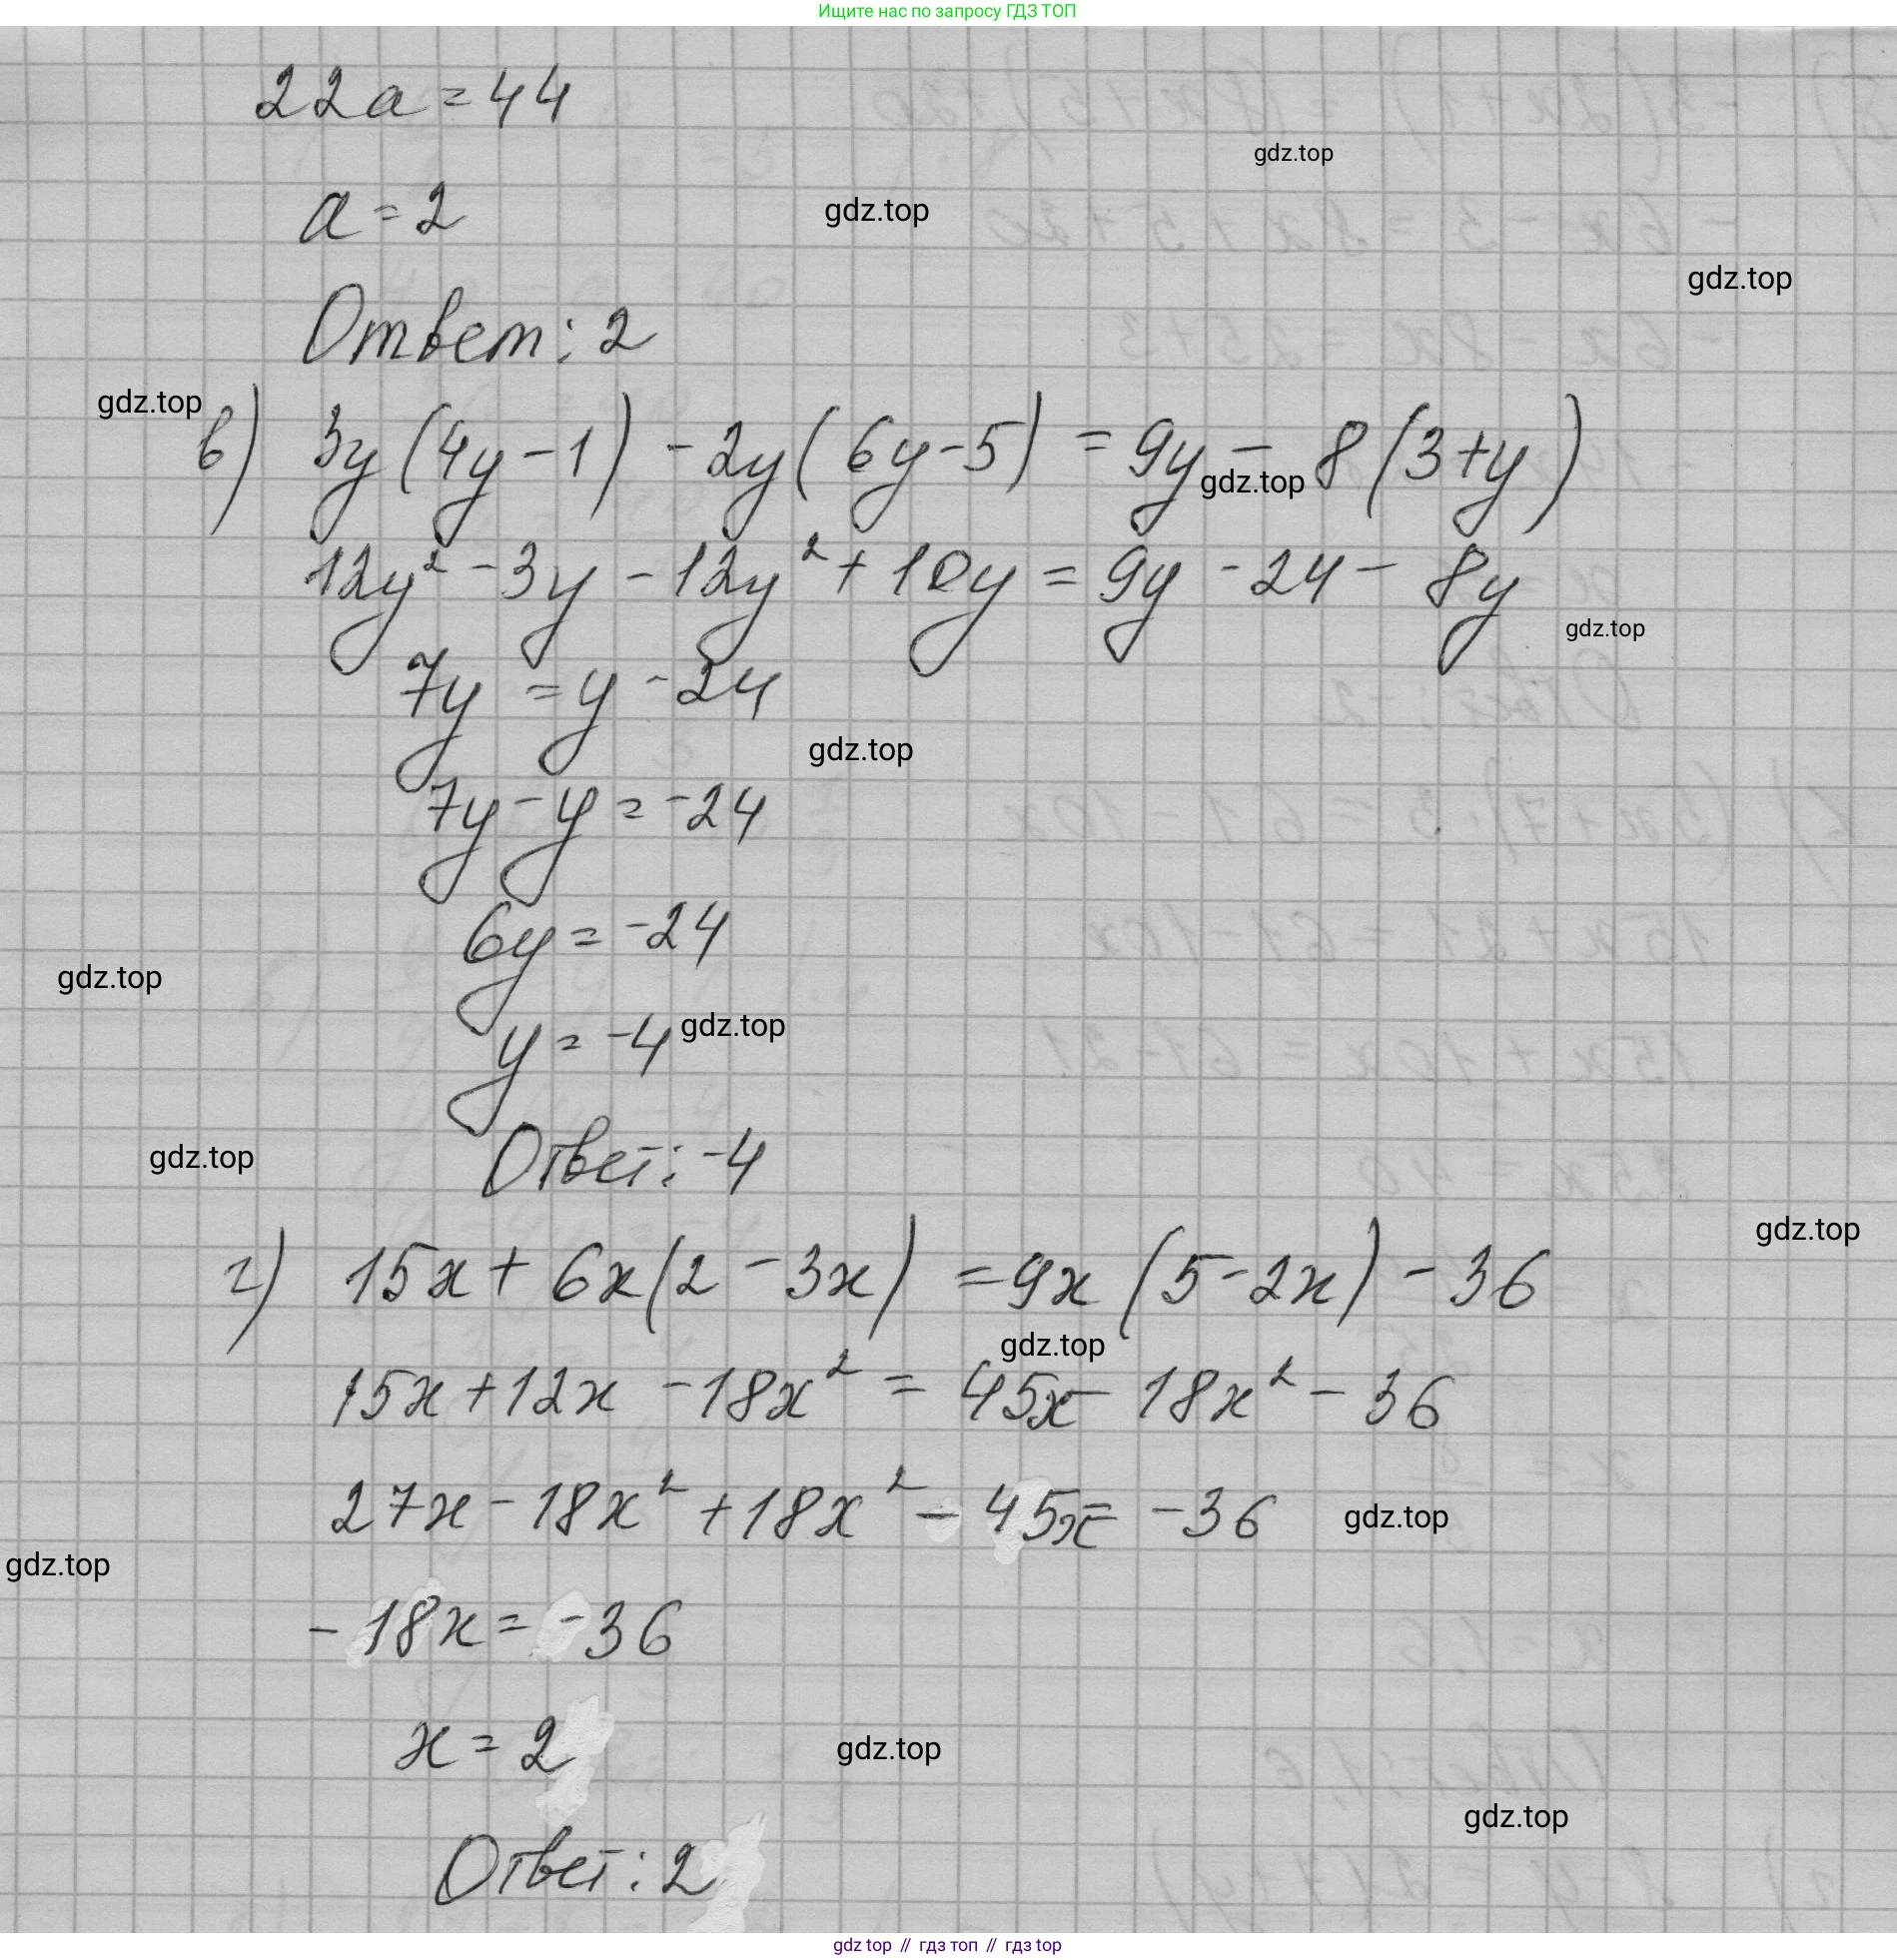 Ищите нас по запросу ГДЗ ТОП
22a = 44
gdz.top
a = 2
gdz.top
gdz.top
Ответ: 2
gdz.top
в) 3y(4y - 1) - 2y(6y - 5) = 9y - 8(3 + y)
gdz.top
12y² - 3y - 12y² + 10y = 9y - 24 - 8y
gdz.top
7y = y - 24
gdz.top
7y - y = -24
6y = -24
gdz.top
y = -4
gdz.top
Ответ: -4
gdz.top
gdz.top
г) 15x + 6x(2 - 3x) = 9x(5 - 2x) - 36
gdz.top
15x + 12x - 18x² = 45x - 18x² - 36
27x - 18x² + 18x² - 45x = -36
gdz.top
gdz.top
-18x = -36
x = 2
gdz.top
gdz.top
Ответ: 2
gdz top // гдз топ // гдз top